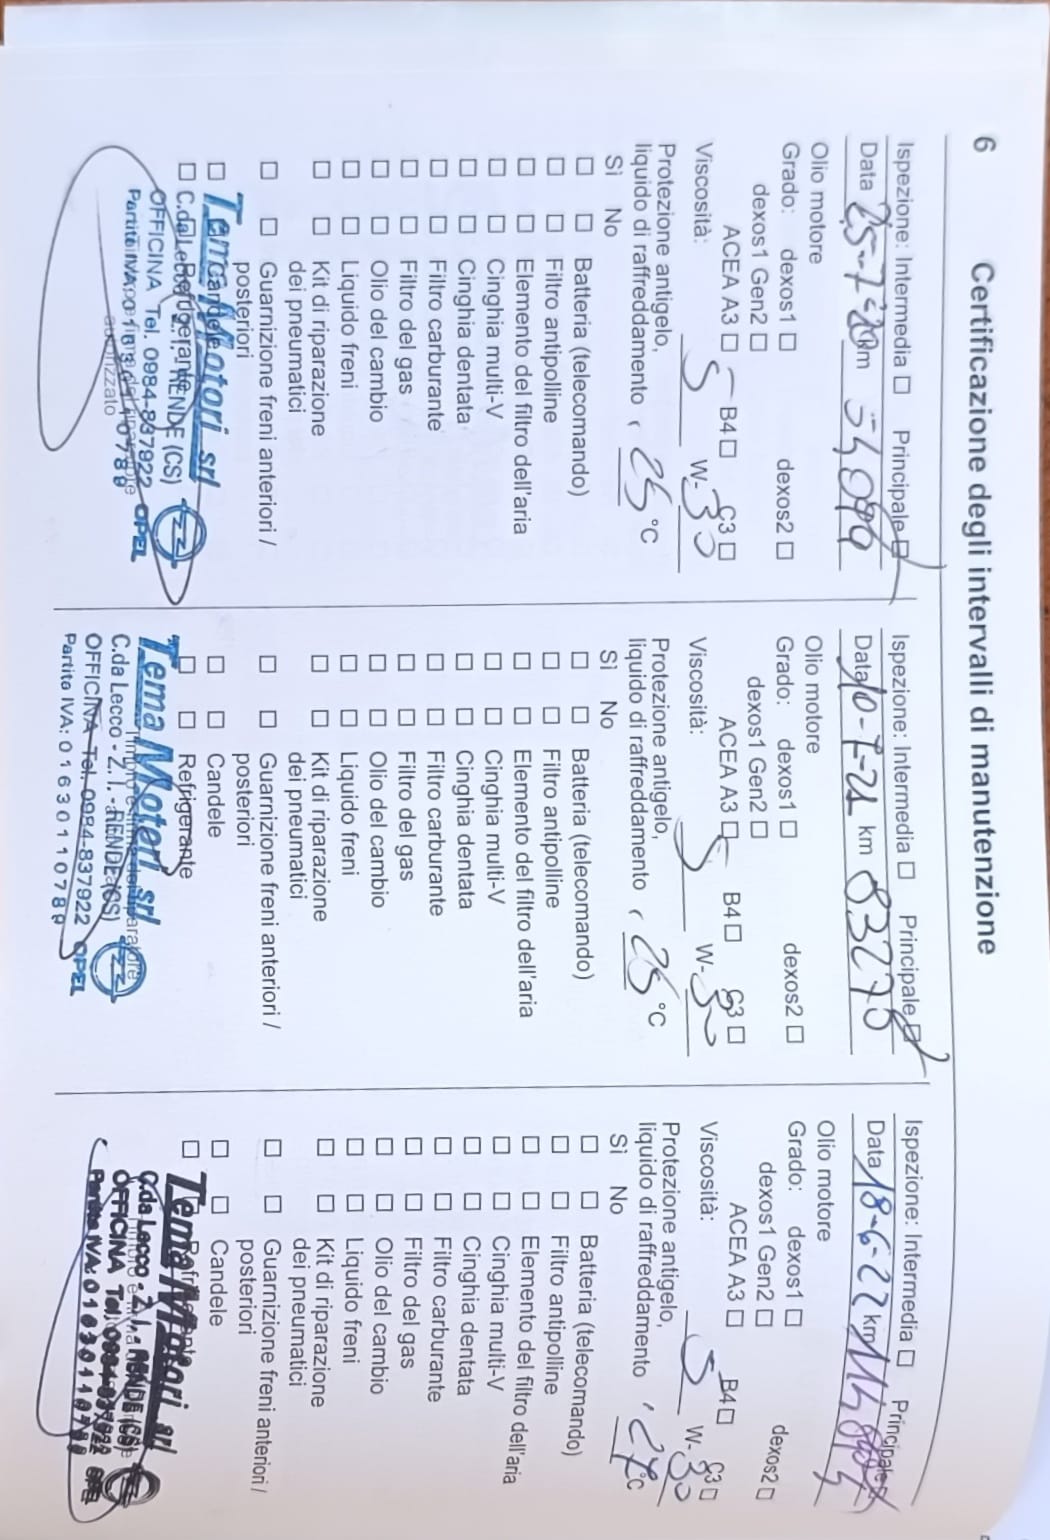 6 Certificazione degli intervalli di manutenzione
Ispezione: Intermedia ☐ Principale ☐
Data 25-7-20 km 54099
Olio motore
Grado: dexos1 ☐ dexos2 ☐
dexos1 Gen2 ☐
ACEA A3 ☐ B4 ☐ C3 ☐
Viscosità: 5 W- 30
Protezione antigelo,
liquido di raffreddamento - 25 °C
Sì No
☐ ☐ Batteria (telecomando)
☐ ☐ Filtro antipolline
☐ ☐ Elemento del filtro dell'aria
☐ ☐ Cinghia multi-V
☐ ☐ Cinghia dentata
☐ ☐ Filtro carburante
☐ ☐ Filtro del gas
☐ ☐ Olio del cambio
☐ ☐ Liquido freni
☐ ☐ Kit di riparazione
dei pneumatici
☐ ☐ Guarnizione freni anteriori /
posteriori
☐ Candele
☐ Refrigerante
Tema Motori srl
C.da Lecco - Z.I. - RENDE (CS)
OFFICINA Tel. 0984-837922 OPEL
Partita IVA: 01630110789
autorizzato
Ispezione: Intermedia ☐ Principale ☐
Data 10-7-21 km 83275
Olio motore
Grado: dexos1 ☐ dexos2 ☐
dexos1 Gen2 ☐
ACEA A3 ☐ B4 ☐ C3 ☐
Viscosità: 5 W- 30
Protezione antigelo,
liquido di raffreddamento - 25 °C
Sì No
☐ ☐ Batteria (telecomando)
☐ ☐ Filtro antipolline
☐ ☐ Elemento del filtro dell'aria
☐ ☐ Cinghia multi-V
☐ ☐ Cinghia dentata
☐ ☐ Filtro carburante
☐ ☐ Filtro del gas
☐ ☐ Olio del cambio
☐ ☐ Liquido freni
☐ ☐ Kit di riparazione
dei pneumatici
☐ ☐ Guarnizione freni anteriori /
posteriori
☐ ☐ Candele
☐ ☐ Refrigerante
Tema Motori srl
C.da Lecco - Z.I. - RENDE (CS)
OFFICINA Tel. 0984-837922 OPEL
Partita IVA: 01630110789
Ispezione: Intermedia ☐ Principale ☐
Data 18-6-22 km
Olio motore
Grado: dexos1 ☐ dexos2 ☐
dexos1 Gen2 ☐
ACEA A3 ☐ B4 ☐ C3 ☐
Viscosità: 5 W- 30
Protezione antigelo,
liquido di raffreddamento - 27 °C
Sì No
☐ ☐ Batteria (telecomando)
☐ ☐ Filtro antipolline
☐ ☐ Elemento del filtro dell'aria
☐ ☐ Cinghia multi-V
☐ ☐ Cinghia dentata
☐ ☐ Filtro carburante
☐ ☐ Filtro del gas
☐ ☐ Olio del cambio
☐ ☐ Liquido freni
☐ ☐ Kit di riparazione
dei pneumatici
☐ ☐ Guarnizione freni anteriori /
posteriori
☐ ☐ Candele
☐ Refrigerante
Tema Motori srl
C.da Lecco - Z.I. - RENDE (CS)
OFFICINA Tel. 0984-837922 OPEL
Partita IVA: 01630110789